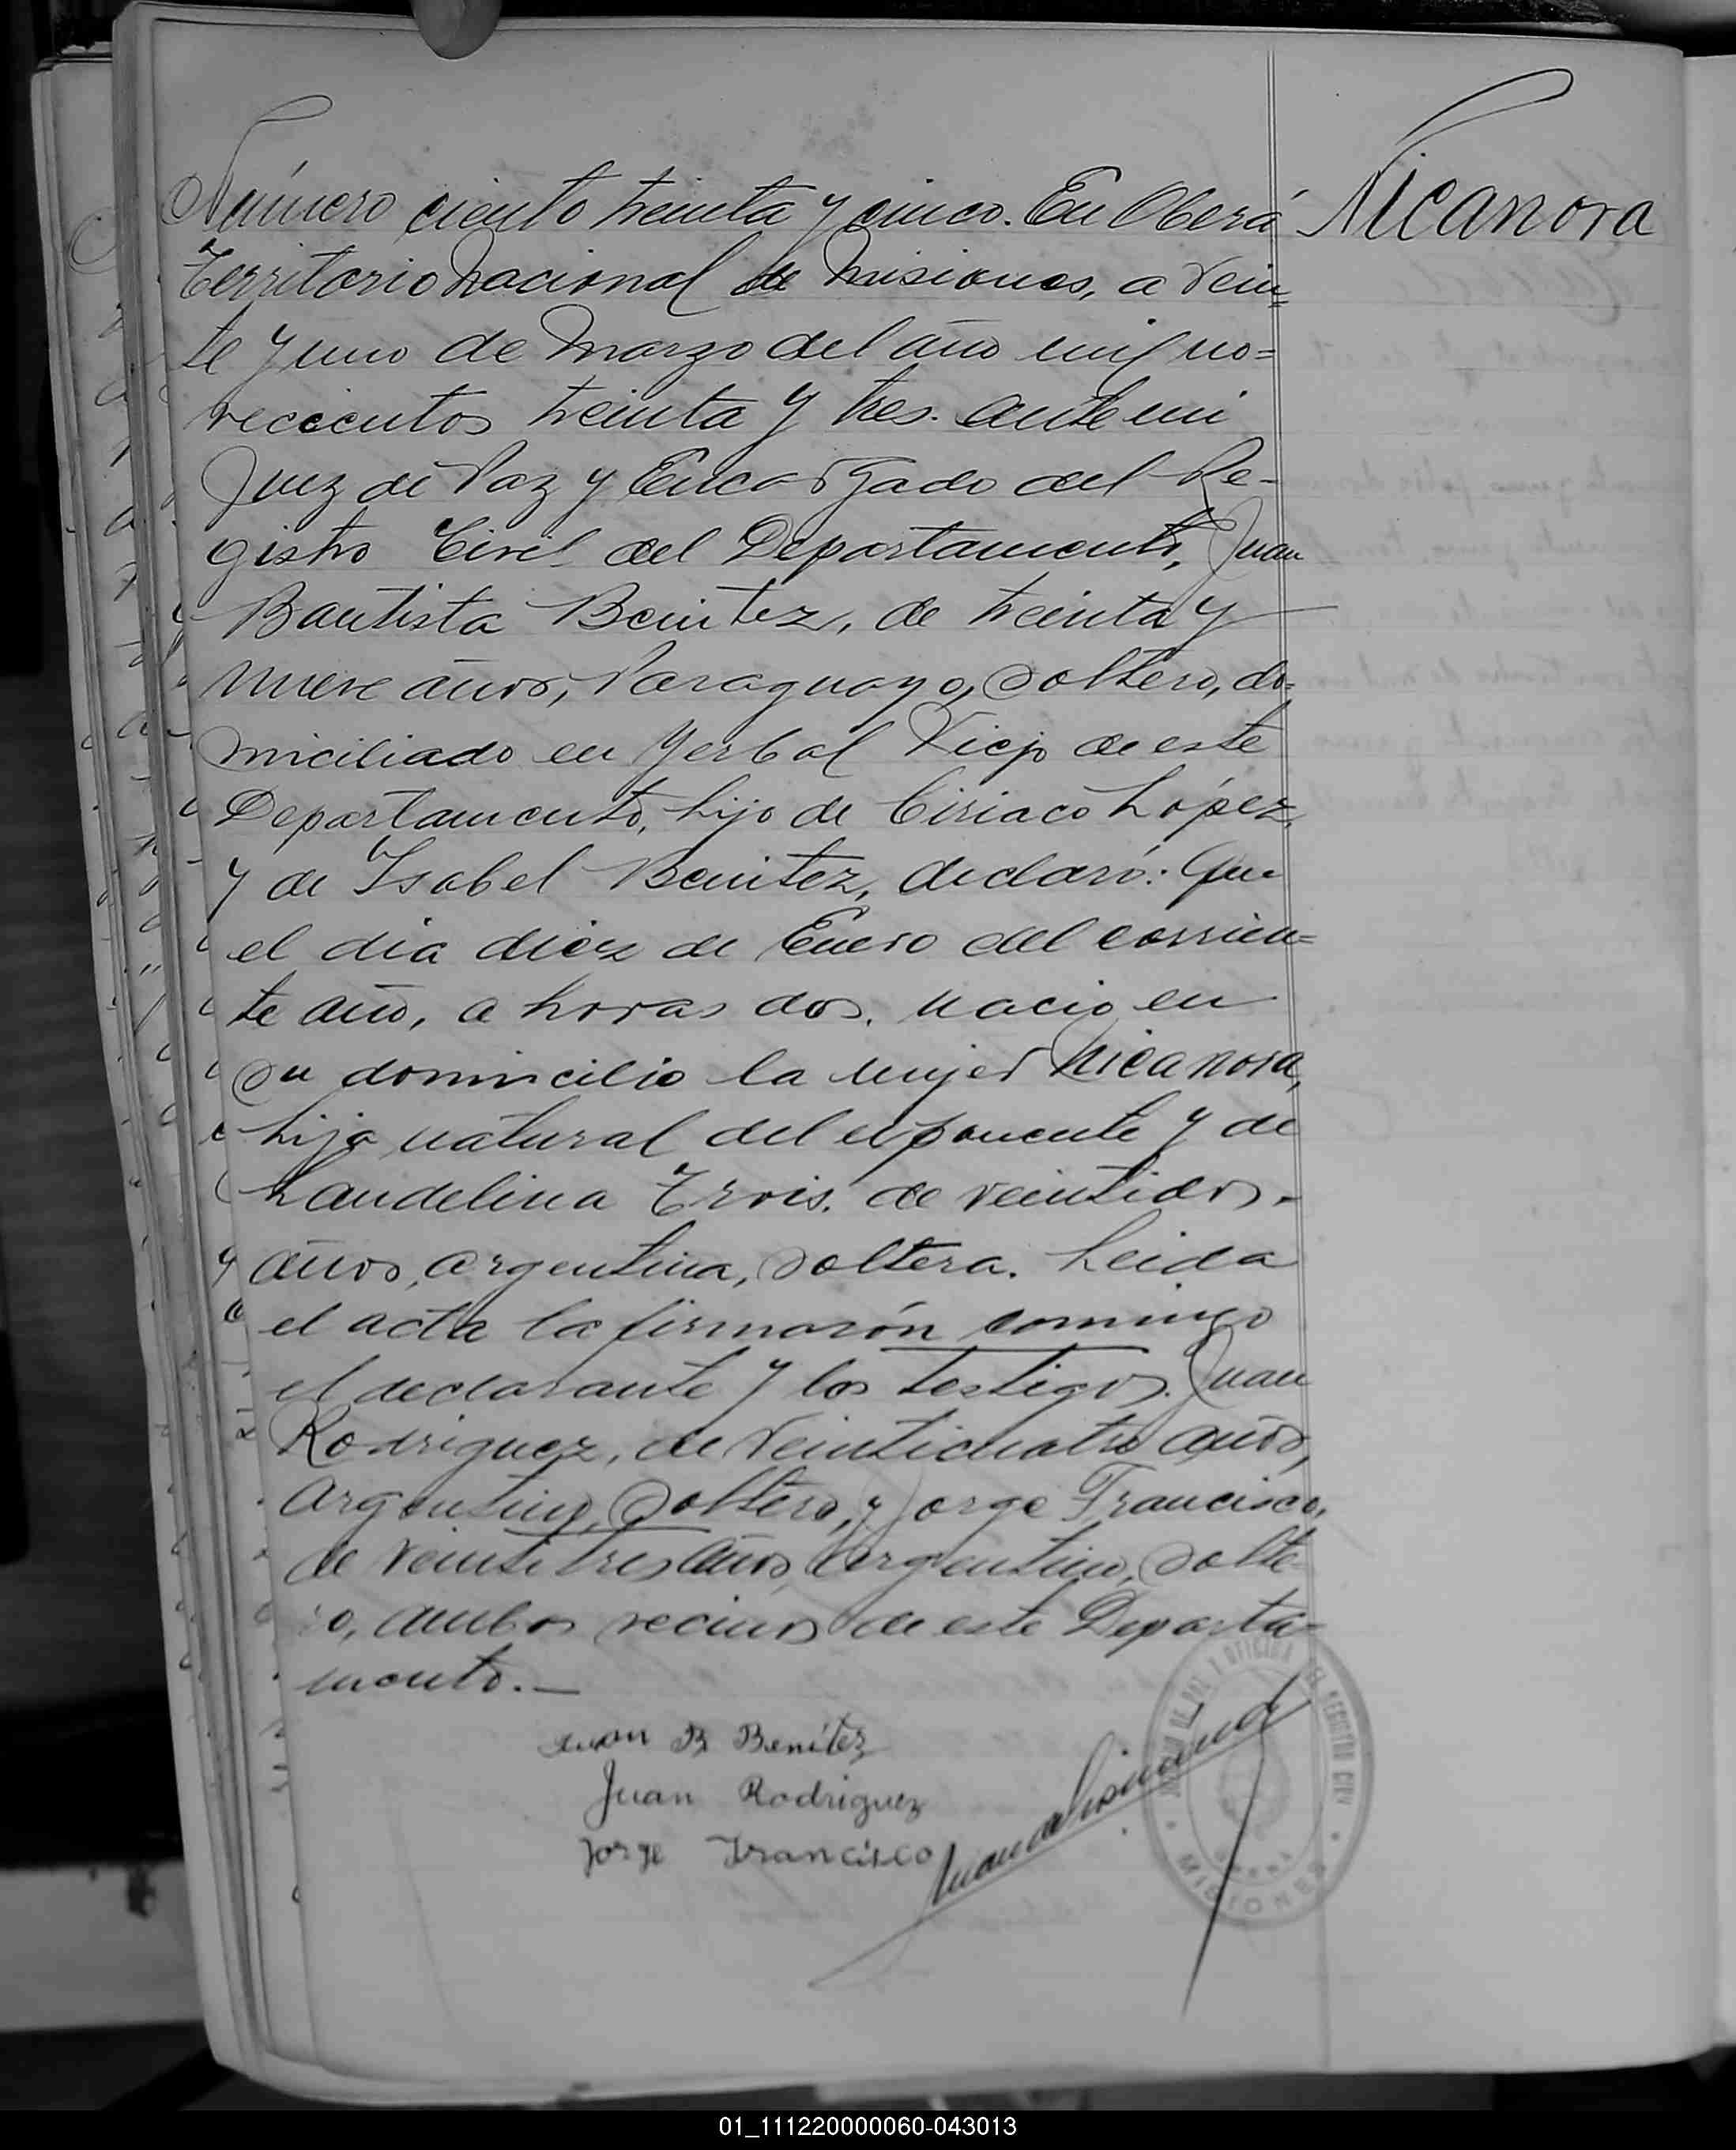 Número ciento treinta y cinco. En Oberá
Nicanora
Territorio Nacional de Misiones, a vein=
te y uno de Marzo del año mil no=
vecientos treinta y tres. ante mi
Juez de Paz y Encargado del Re-
gistro Civil del Departamento, Juan
Bautista Benitez, de treinta y
nueve años, Paraguayo, soltero, do=
miciliado en Yerbal Viejo de este
Departamento, hijo de Ciriaco López,
y de Isabel Benitez, declaró: Que
el dia diez de Enero del corrien=
te año, a horas dos, nació en
su domicilio la mujer Nicanora,
hija natural del exponente y de
Landelina Trois, de veintidos
años, argentina, soltera. Leida
el acta la firmarón conmigo
el declarante y los testigos. Juan
Rodriguez, de veinticuatro años,
Argentino, soltero, y Jorge Francisco,
de veintitres años, Argentino, solte
ro, ambos vecinos de este Departa=
mento.—
Juan B Benítez
Juan Rodriguez
Jorge Francisco
JUZGADO DE PAZ Y OFICINA DEL REGISTRO CIVIL
OBERÁ
MISIONES
01_111220000060-043013